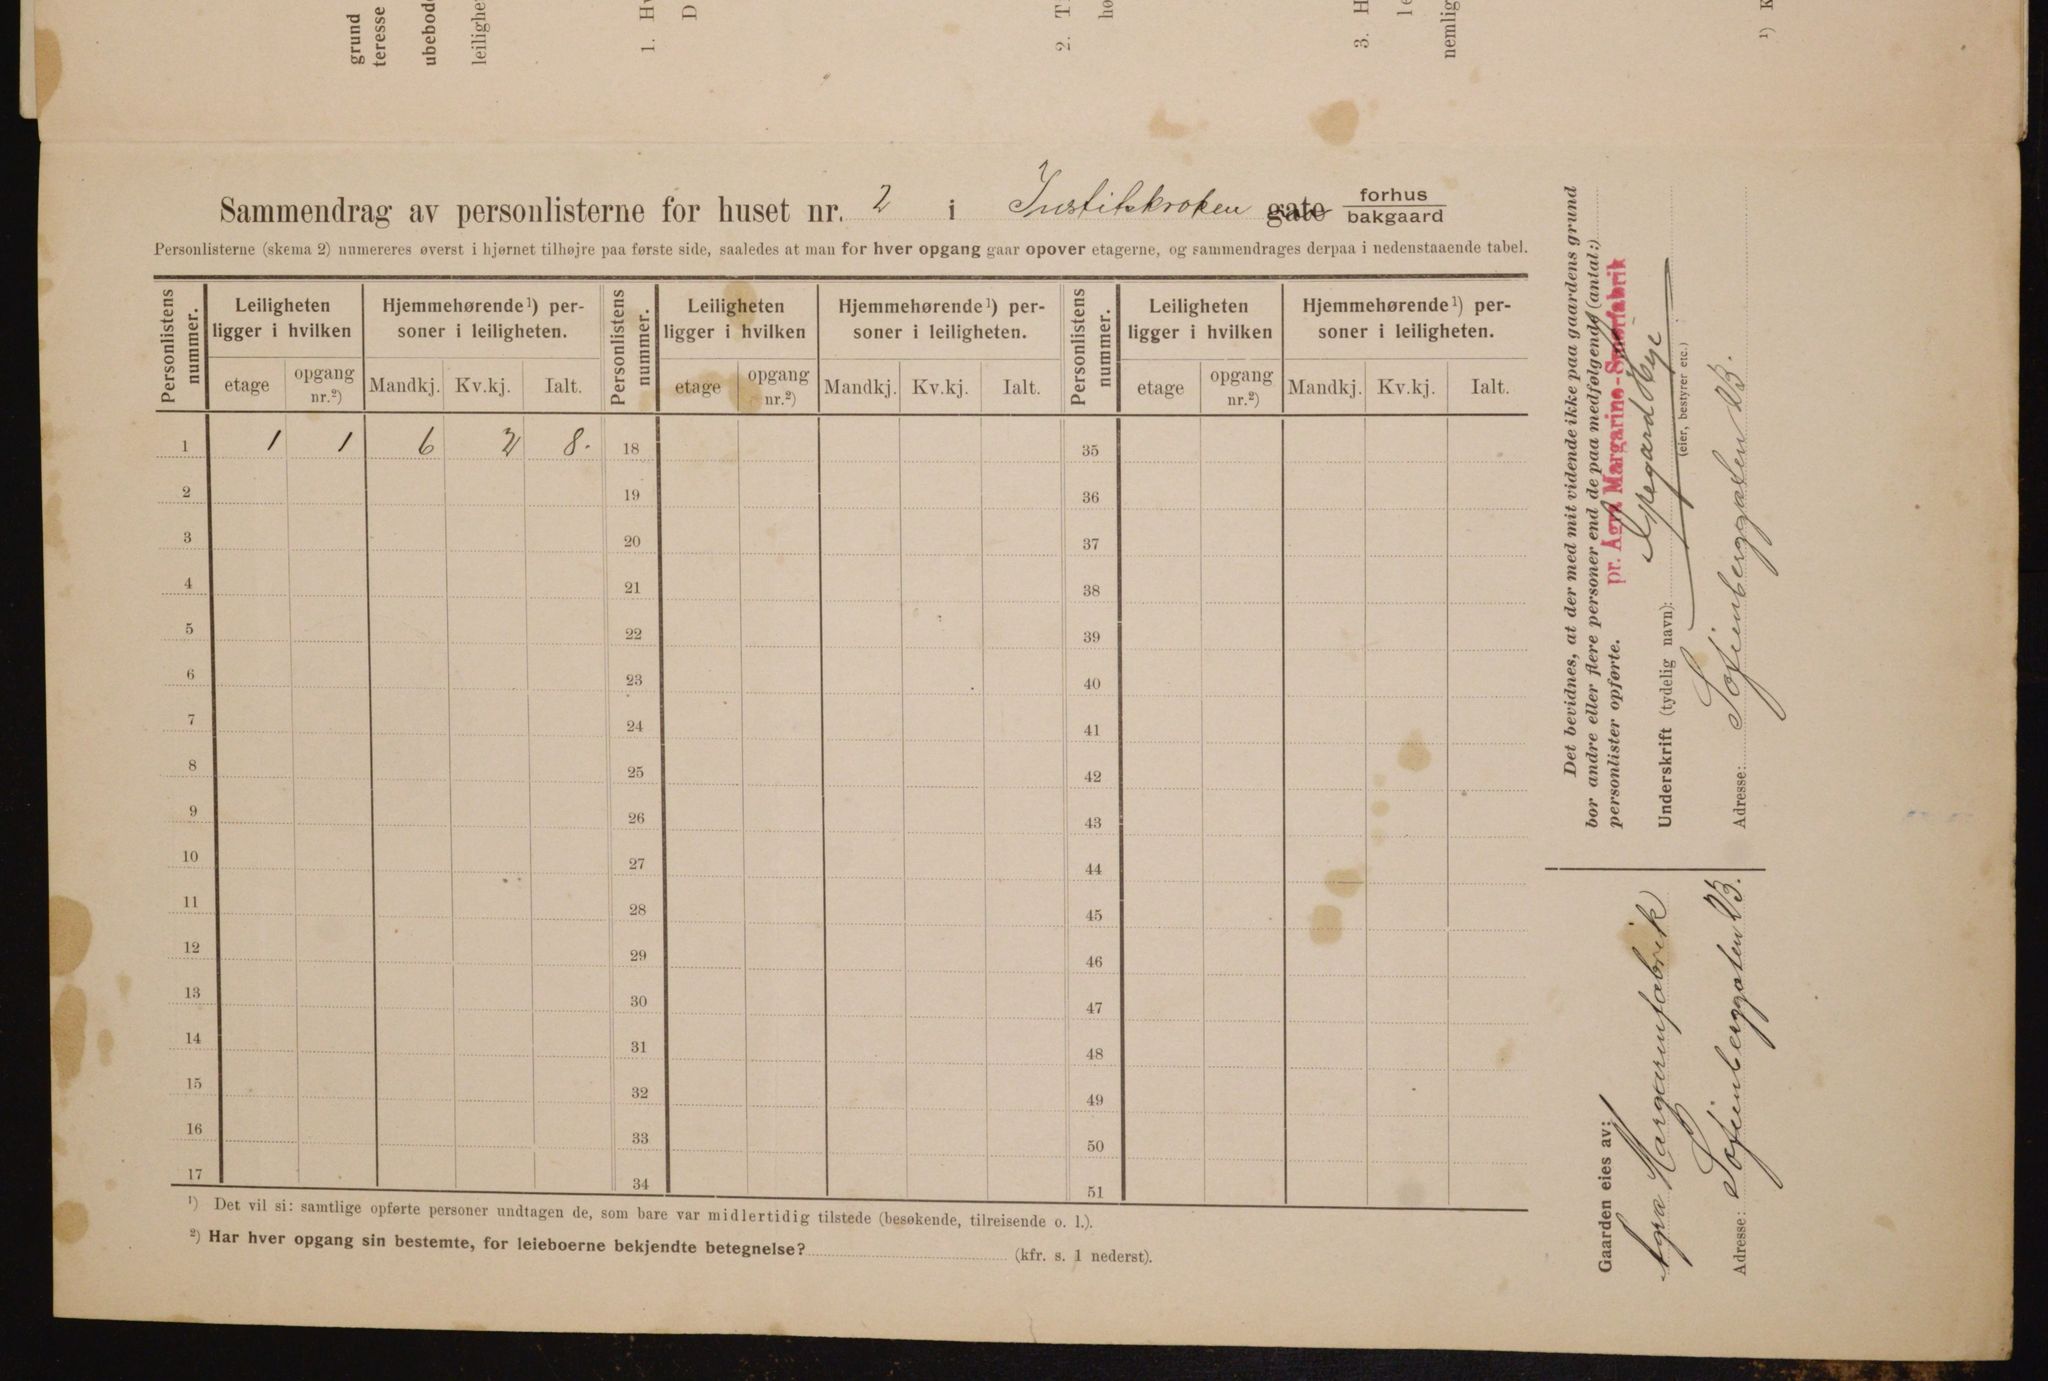 grund
teresse
ubebod
leilighe
1. Hv
D
2. T
hø
3. H
le
nemlig
¹) K
Sammendrag av personlisterne for huset nr. 2 i Institskroken gate forhus
bakgaard
Personlisterne (skema 2) numereres øverst i hjørnet tilhøjre paa første side, saaledes at man for hver opgang gaar opover etagerne, og sammendrages derpaa i nedenstaaende tabel.
Personlistens nummer. Leiligheten ligger i hvilken Hjemmehørende¹) personer i leiligheten. Personlistens nummer. Leiligheten ligger i hvilken Hjemmehørende¹) personer i leiligheten. Personlistens nummer. Leiligheten ligger i hvilken Hjemmehørende¹) personer i leiligheten.
etage opgang nr.²) Mandkj. Kv.kj. Ialt. etage opgang nr.²) Mandkj. Kv.kj. Ialt. etage opgang nr.²) Mandkj. Kv.kj. Ialt.
1 1 1 6 2 8. 18 35
2 19 36
3 20 37
4 21 38
5 22 39
6 23 40
7 24 41
8 25 42
9 26 43
10 27 44
11 28 45
12 29 46
13 30 47
14 31 48
15 32 49
16 33 50
17 34 51
¹) Det vil si: samtlige opførte personer undtagen de, som bare var midlertidig tilstede (besøkende, tilreisende o. l.).
²) Har hver opgang sin bestemte, for leieboerne bekjendte betegnelse? (kfr. s. 1 nederst).
Det bevidnes, at der med mit vidende ikke paa gaardens grund
bor andre eller flere personer end de paa medfølgende (antal:)
personlister opførte.
pr. Agra Margarine-Smørfabrik
Underskrift (tydelig navn):
(eier, bestyrer etc.)
Adresse: Sofienberggaten 2B.
Gaarden eies av:
Agra Margarinfabrik
Adresse: Sofienberggaten 2B.